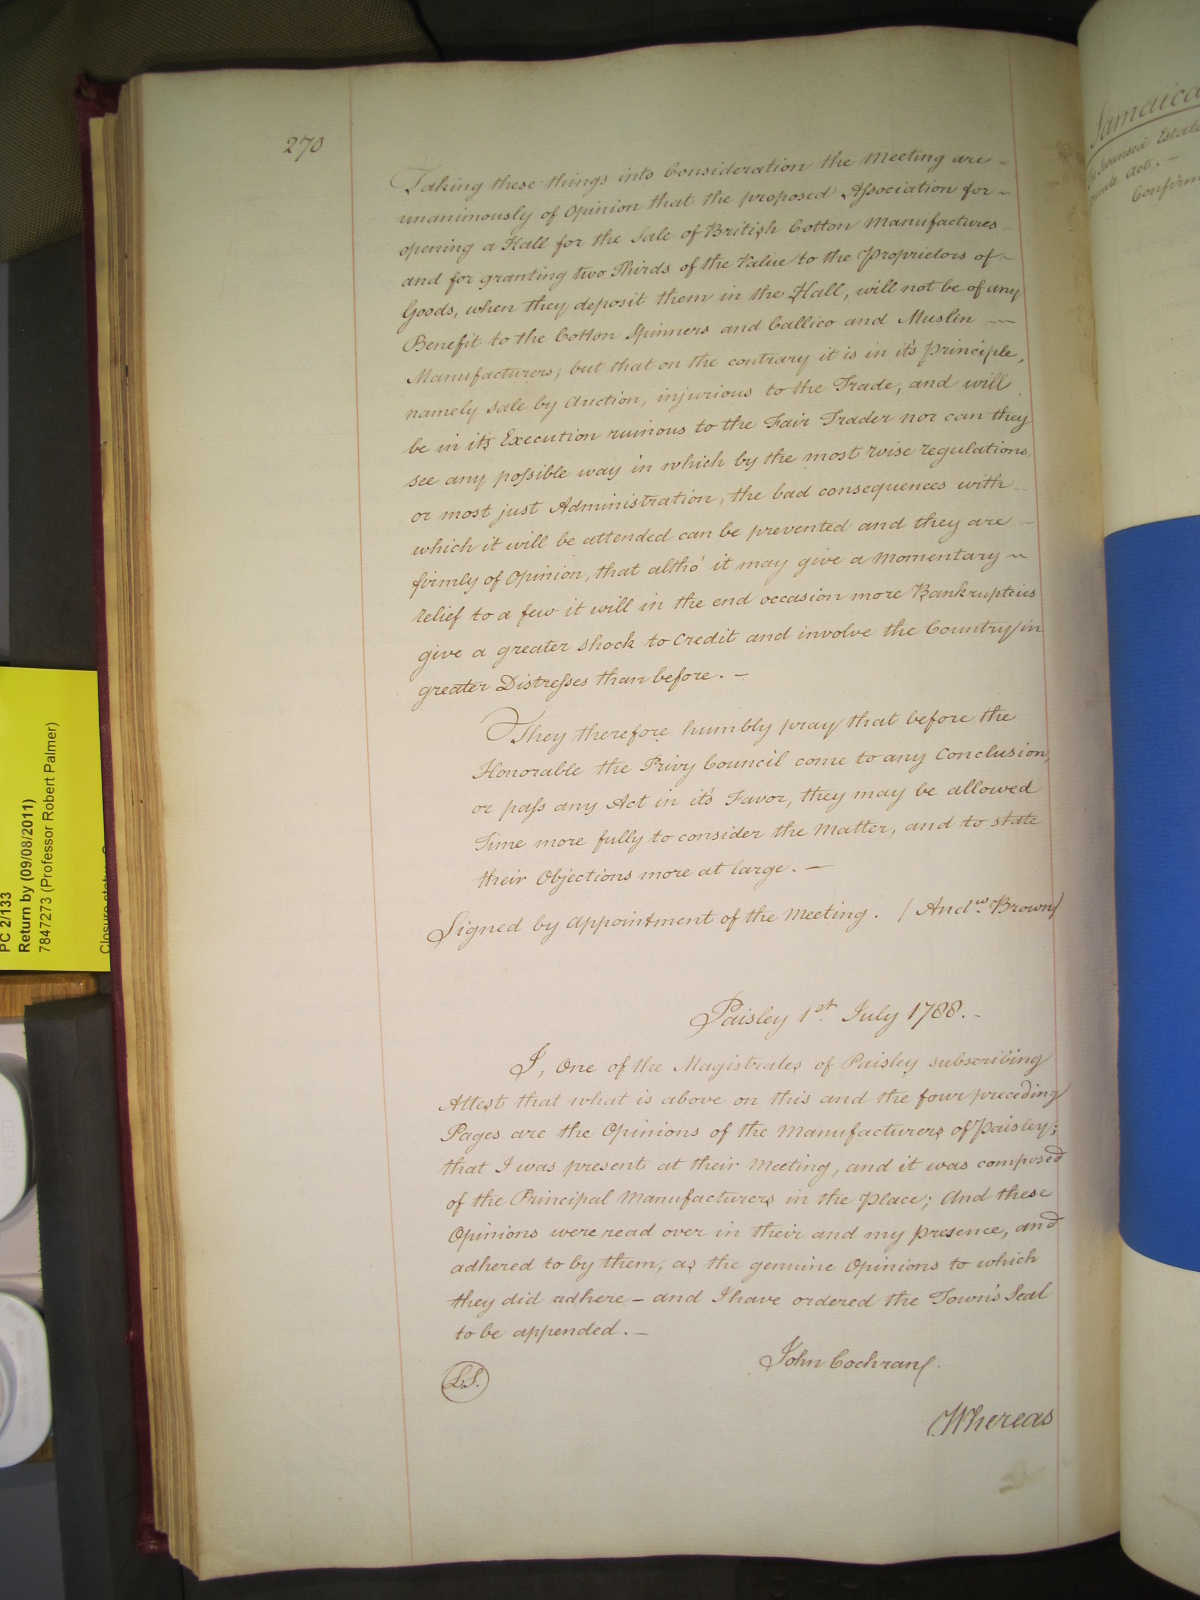 270
Taking these things into Consideration the Meeting are
unanimously of Opinion that the proposed Association for
opening a Hall for the Sale of British Cotton Manufactures
and for granting two Thirds of the Value to the Proprietors of
Goods, when they deposit them in the Hall, will not be of any
Benefit to the Cotton Spinners and Callico and Muslin
Manufacturers; but that on the contrary it is in it's Principle,
namely Sale by Auction, injurious to the Trade, and will
be in it's Execution ruinous to the Fair Trader nor can they
see any possible way in which by the most wise regulations
or most just Administration, the bad consequences with
which it will be attended can be prevented and they are
firmly of Opinion, that altho' it may give a Momentary
relief to a few it will in the end occasion more Bankruptcies
give a greater shock to Credit and involve the Country in
greater Distresses than before. —
They therefore humbly pray that before the
Honorable the Privy Council come to any Conclusion,
or pass any Act in it's Favor, they may be allowed
Time more fully to consider the Matter, and to state
their Objections more at large. —
Signed by appointment of the Meeting. / Andw. Brown/
Paisley 1st. July 1788. -
I, One of the Magistrates of Paisley subscribing
Attest that what is above on this and the four preceding
Pages are the Opinions of the Manufacturers of Paisley;
that I was present at their Meeting, and it was composed
of the Principal Manufacturers in the Place; And these
Opinions were read over in their and my presence, and
adhered to by them, as the genuine Opinions to which
they did adhere — and I have ordered the Town's Seal
to be appended. —
John Cochran/.
L.S.
Whereas
Jamaica
Swansea Estate
Private Act. —
Confirm
PC 2/133
Return by (09/08/2011)
7847273 (Professor Robert Palmer)